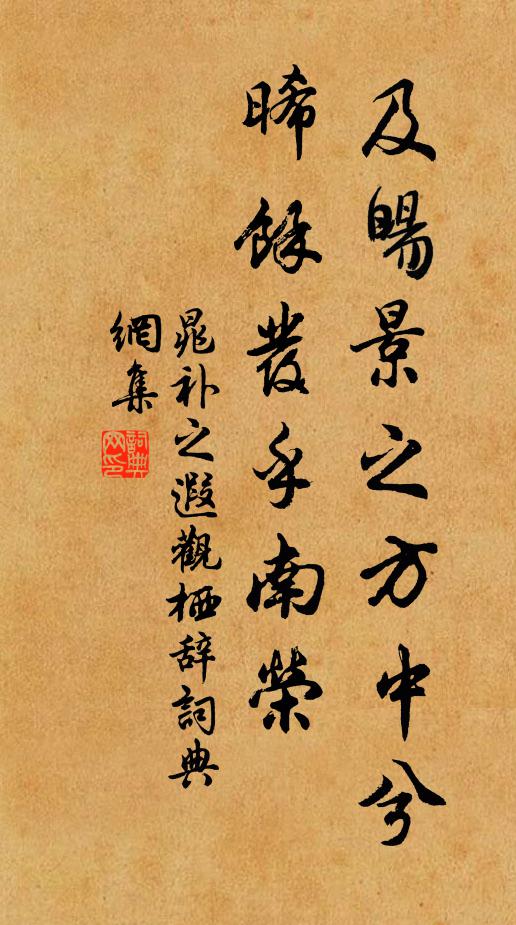 及暘景之方中兮
晞餘發乎南榮
晁补之遐觀栖辞詞典
網集
詞典
网印